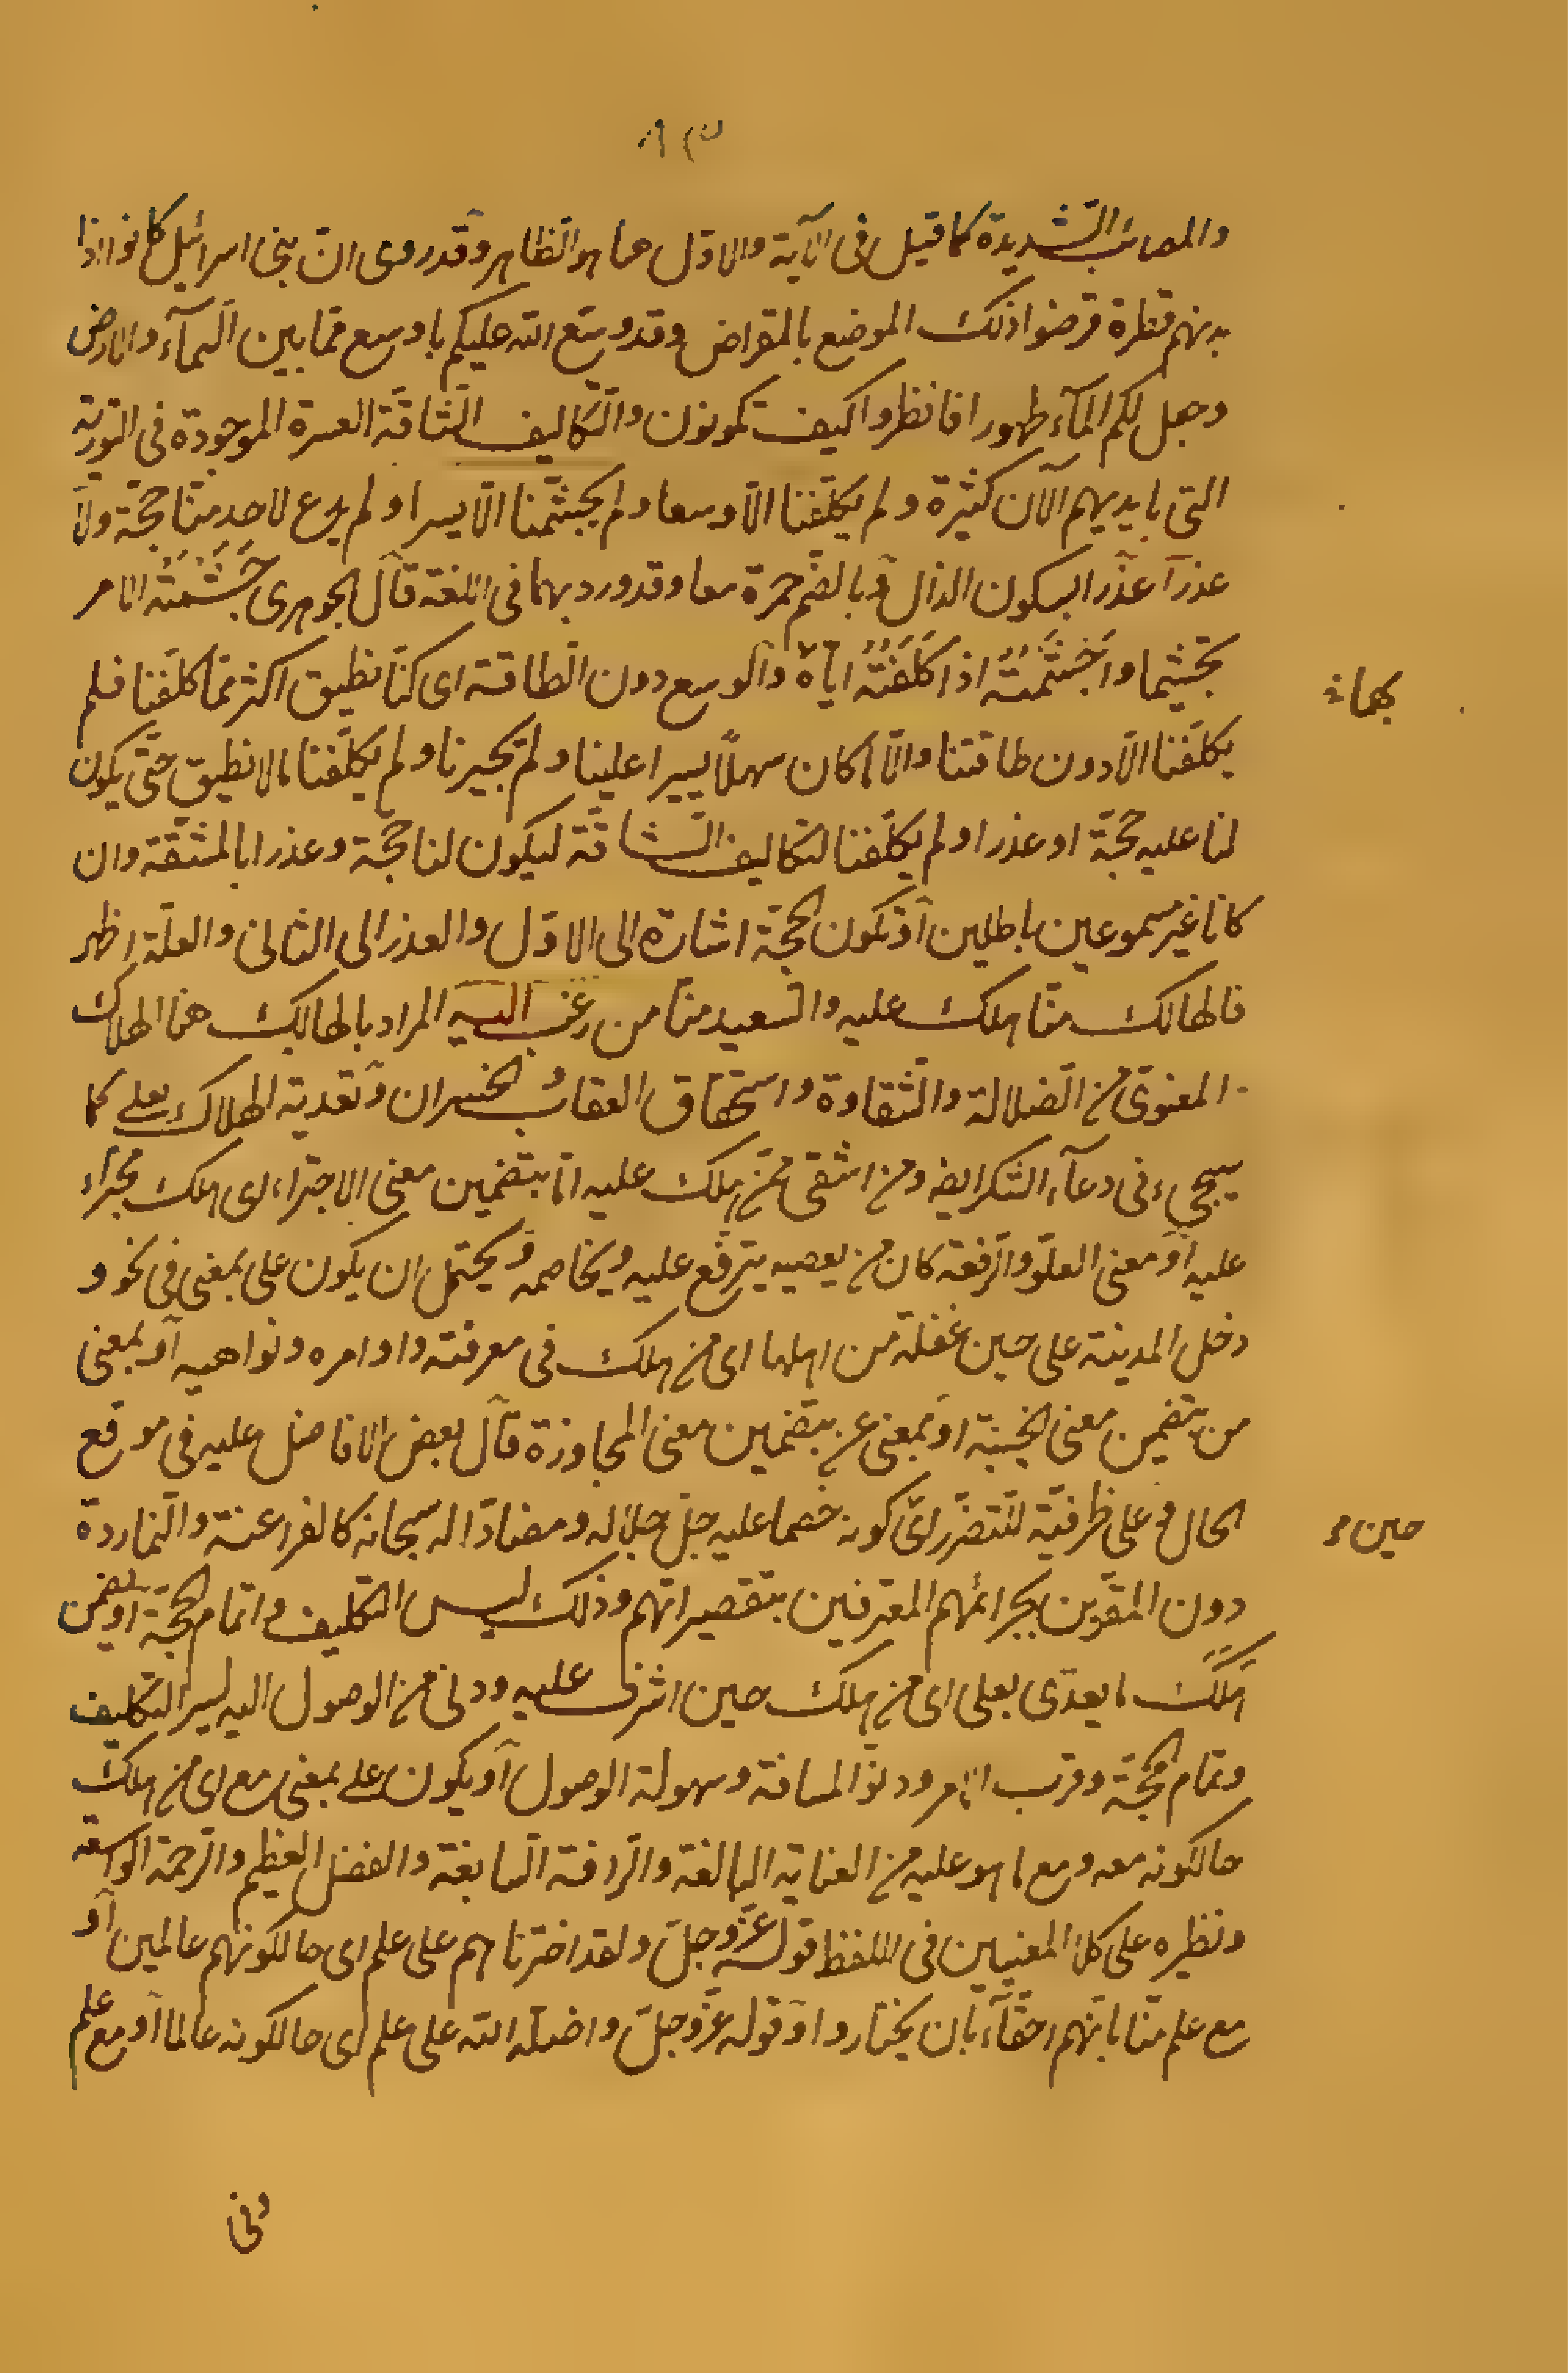 والمصائب الشديدة كما قيل في الآية والاول هنا هو الظاهر وقد روى ان بنى اسرائيل كانوا اذا
بدنهم قطرة قرضوا ذلك الموضع بالمقراض وقد وسّع الله عليكم باوسع ممّا بين السمآء والارض
وجعل لكم المآء طهورا فانظروا كيف تكونون والتّكاليف الشّاقّة العسرة الموجودة فى التورية
التى بايديهم الآن كثيرة ولم يكلّفنا الّا وسعا ولم يجشّمنا الّا يسرا ولم يدع لاحد منّا حجّة ولا
عذرا عذرا بسكون الذال وبالضم حمزة معا وقد ورد بهما فى اللغة قال الجوهرى جَشَّمْتُه الامر
تجشيما واَجْشَمْتُه اذا كلّفتُه ايّاه والوسع دون الطّاقة اى كنّا نطيق اكثر ممّا كلّفنا فلم
يكلّفنا الّا دون طاقتنا والّا ما كان سهلًا يسيرا علينا ولم يجبرنا ولم يكلّفنا ما لا نطيق حتّى يكون
لنا عليه حجّة او عذرا ولم يكلّفنا التكاليف الشّاقّة ليكون لنا حجّة وعذرا بالمشقّة وان
كانا غير مسموعين باطلين او تكون الحجّة اشارة الى الاوّل والعذر الى الثانى والعلّة اظهر
فالهالك منّا من هلك عليه والسّعيد منّا من رغب اليه المراد بالهالك هنا الهلاك
المعنوىّ من الضّلالة والشّقاوة واستحقاق العقاب والخسران وتعدية الهلاك بعلى كما
سيجىء فى دعآء الشكر ايضا ومن اشقى ممّن هلك عليه امّا بتضمين معنى الاجتراء اى هلك مجتراء
عليه او معنى العلوّ والرّفعة كان من يعصيه يترفّع عليه ويخاصمه ويحتمل ان يكون على بمعنى فى نحو و
دخل المدينة على حين غفلة من اهلها اى من هلك فى معرفته واوامره ونواهيه او بمعنى
من بتضمين معنى الخيبة او بمعنى عن بتضمين معنى المجاوزة قال بعض الافاضل عليه فى موقع
الحال وعلى ظرفيّة للتضرّر اى كونه خصما عليه جلّ جلاله ومضادّا له سبحانه كالفراعنة والنّماردة
دون المقرّين بجرائمهم المعترفين بتقصيراتهم وذلك ليسر التكليف واتمام الحجّة او بتضمن
هلك ما يعدّى بعلى اى من هلك حين اشرف عليه ودنى من الوصول اليه ليسر التكليف
وتمام الحجّة وقرب الامر ودنوّ المسافة وسهولة الوصول او يكون على بمعنى مع اى من هلك
حالكونه معه ومع ما هو عليه من العناية البالغة والرّافة السّابغة والفضل العظيم والرّحمة الواسعة
ونظيره على كلا المعنيين فى اللفظ قوله عزّ وجلّ ولقد اخترناهم على علم اى حالكونهم عالمين او
مع علم منّا بانّهم احقّآء بان يختاروا او قوله عزّ وجلّ واضلّه الله على علم اى حالكونه عالما او مع علم
بهما
حين
وفى